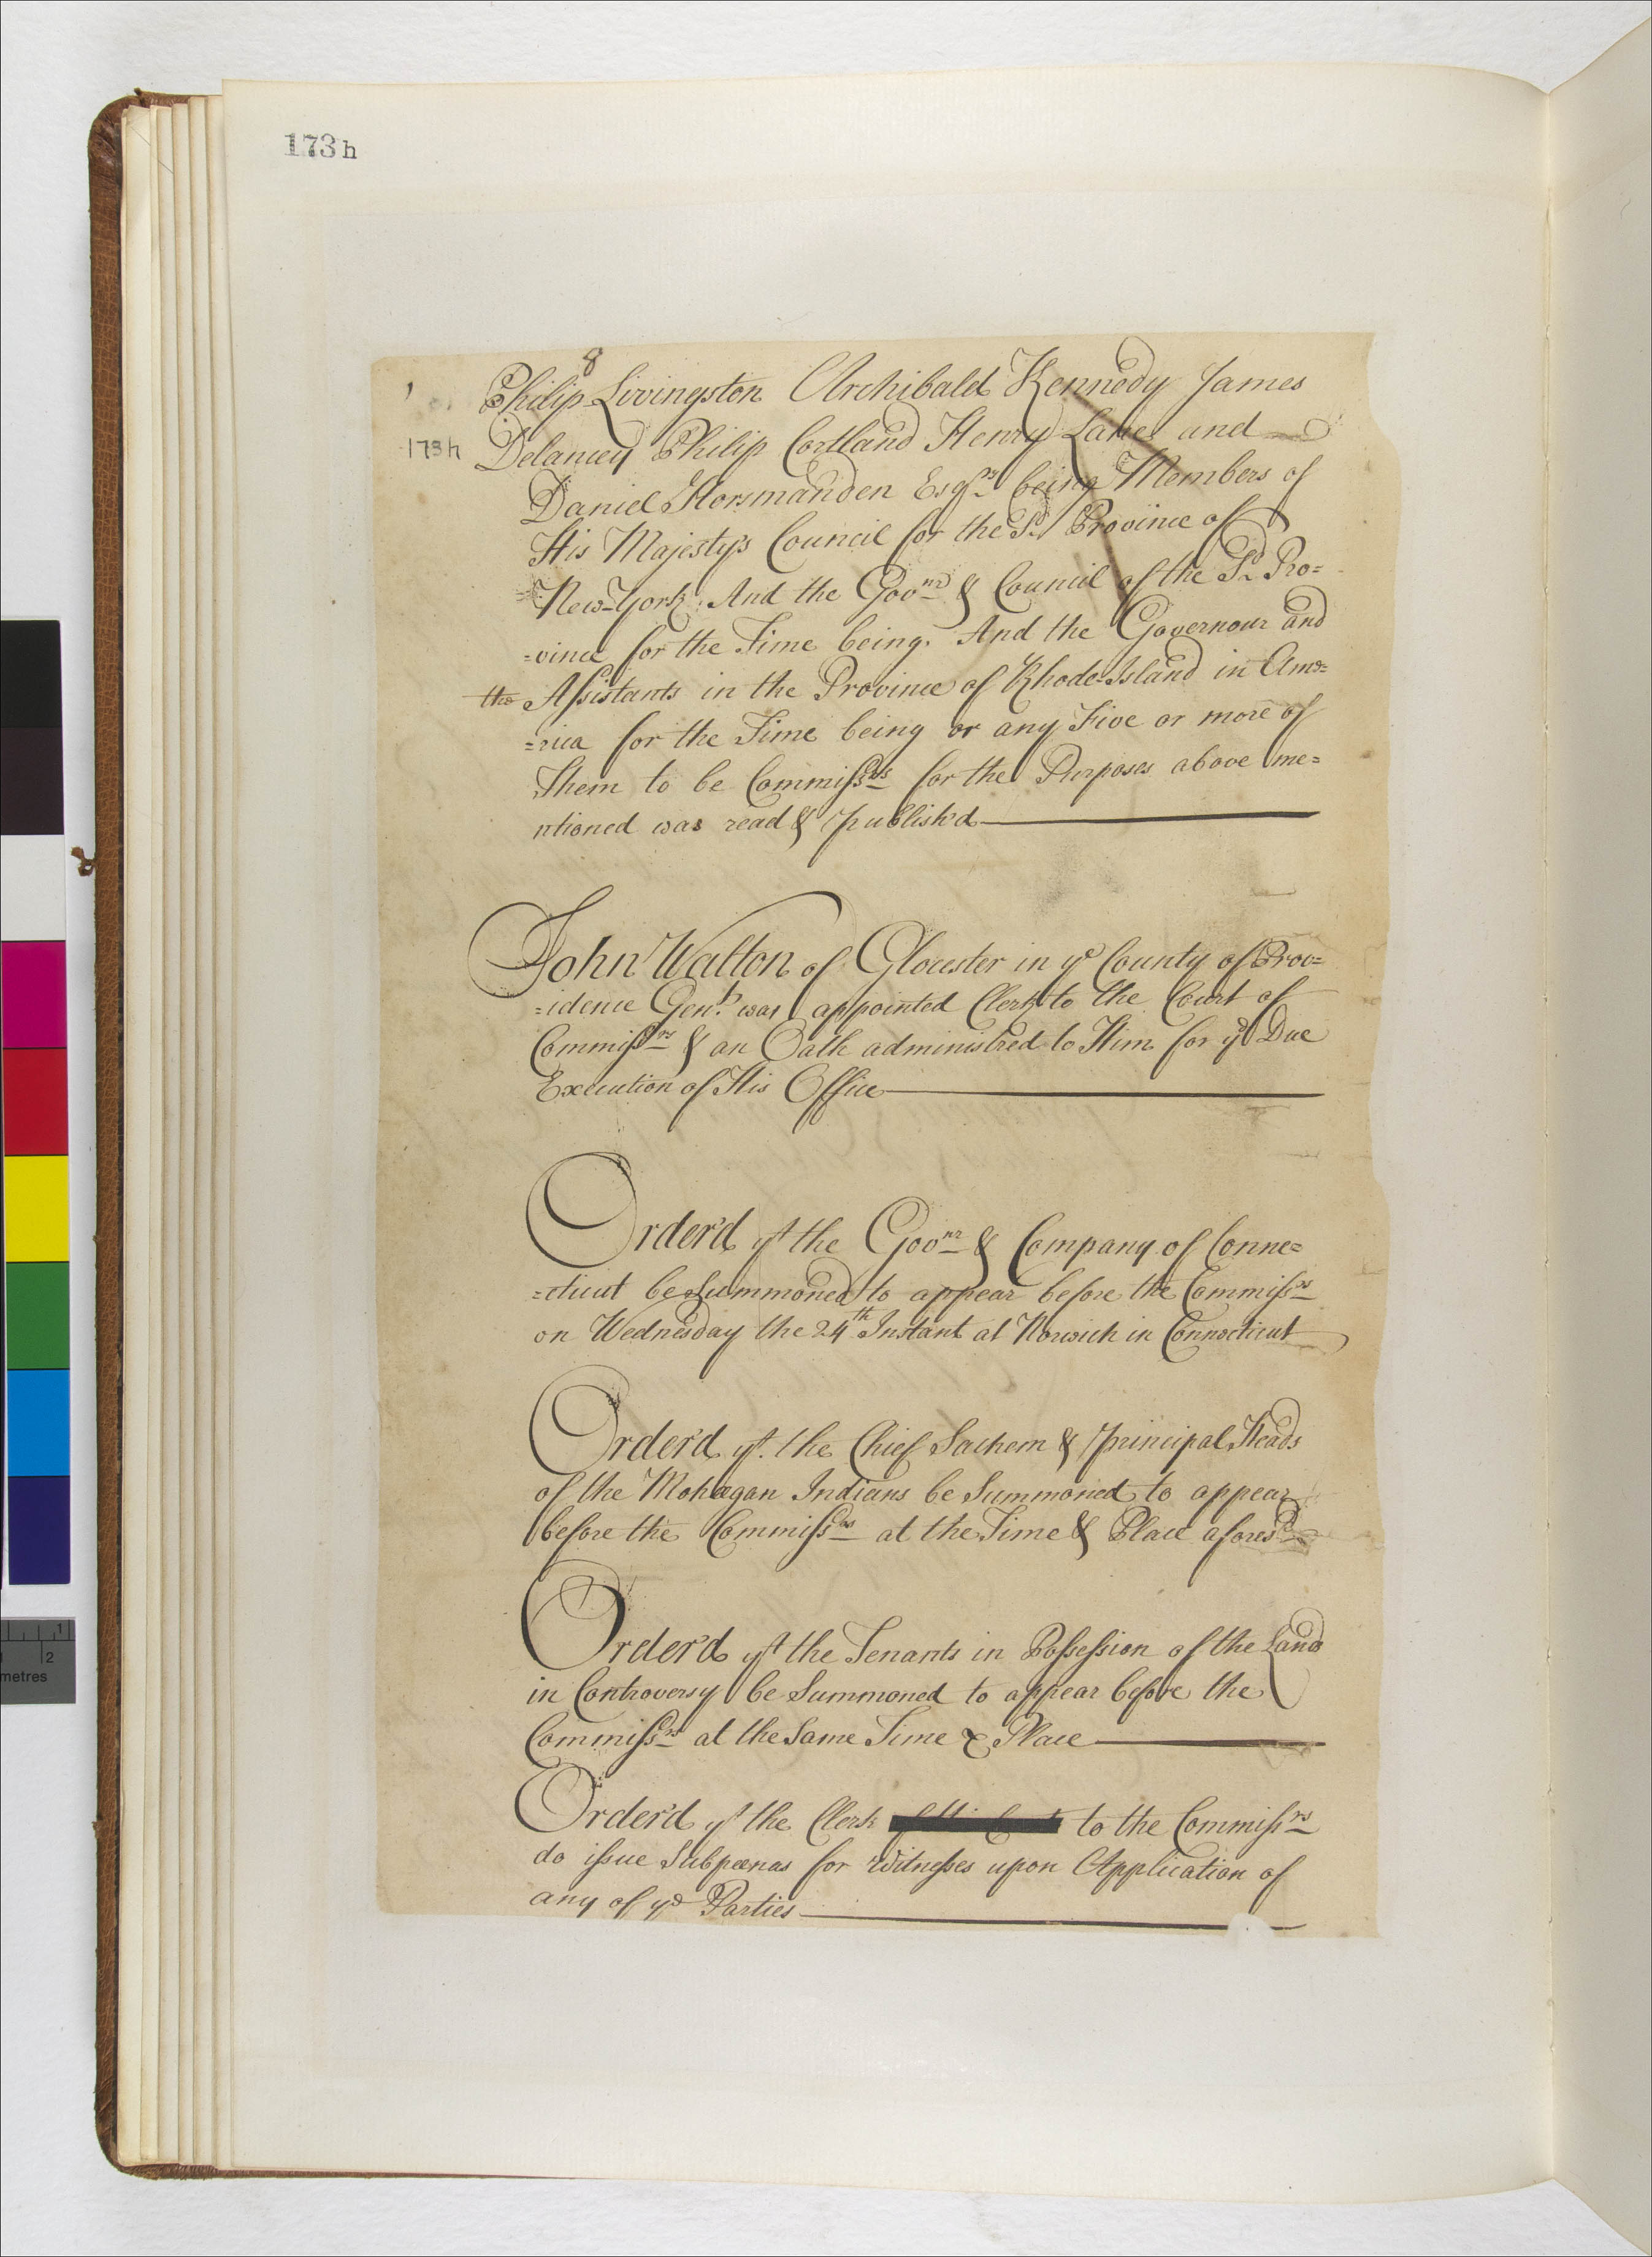 173h
8
Philip Livingston Archibald Kennedy James
173h
Delancey Philip Cortland Henry Lane and
Daniel Horsmanden Esqrs. being Members of
His Majestys Council for the Sd. Province of
New-York. And the Govnr. & Council of the Sd. Pro=
=vince for the Time being. And the Governour and
the Assistants in the Province of Rhode-Island in Ame=
=rica for the Time being or any Five or more of
Them to be Commissrs. for the Purposes above me=
ntioned was read & publish'd
John Walton of Glocester in ye County of Prov=
=idence Gent. was appointed Clerk to the Court of
Commissrs. & an Oath administred to Him for ye Due
Execution of His Office
Order'd yt the Govnr. & Company of Conne=
=cticut be Summoned to appear before the Commissrs.
on Wednesday the 24th Instant at Norwich in Connecticut
Order'd yt. the Chief Sachem & principal Heads
of the Mohegan Indians be Summoned to appear
before the Commissrs. at the Time & Place aforesd.
Order'd yt the Tenants in Possession of the Lands
in Controversy be Summoned to appear before the
Commissrs. at the Same Time & Place
Order'd yt the Clerk to the Commissrs.
do issue Subpœnas for Witnesses upon Application of
any of ye Parties
1
2
metres